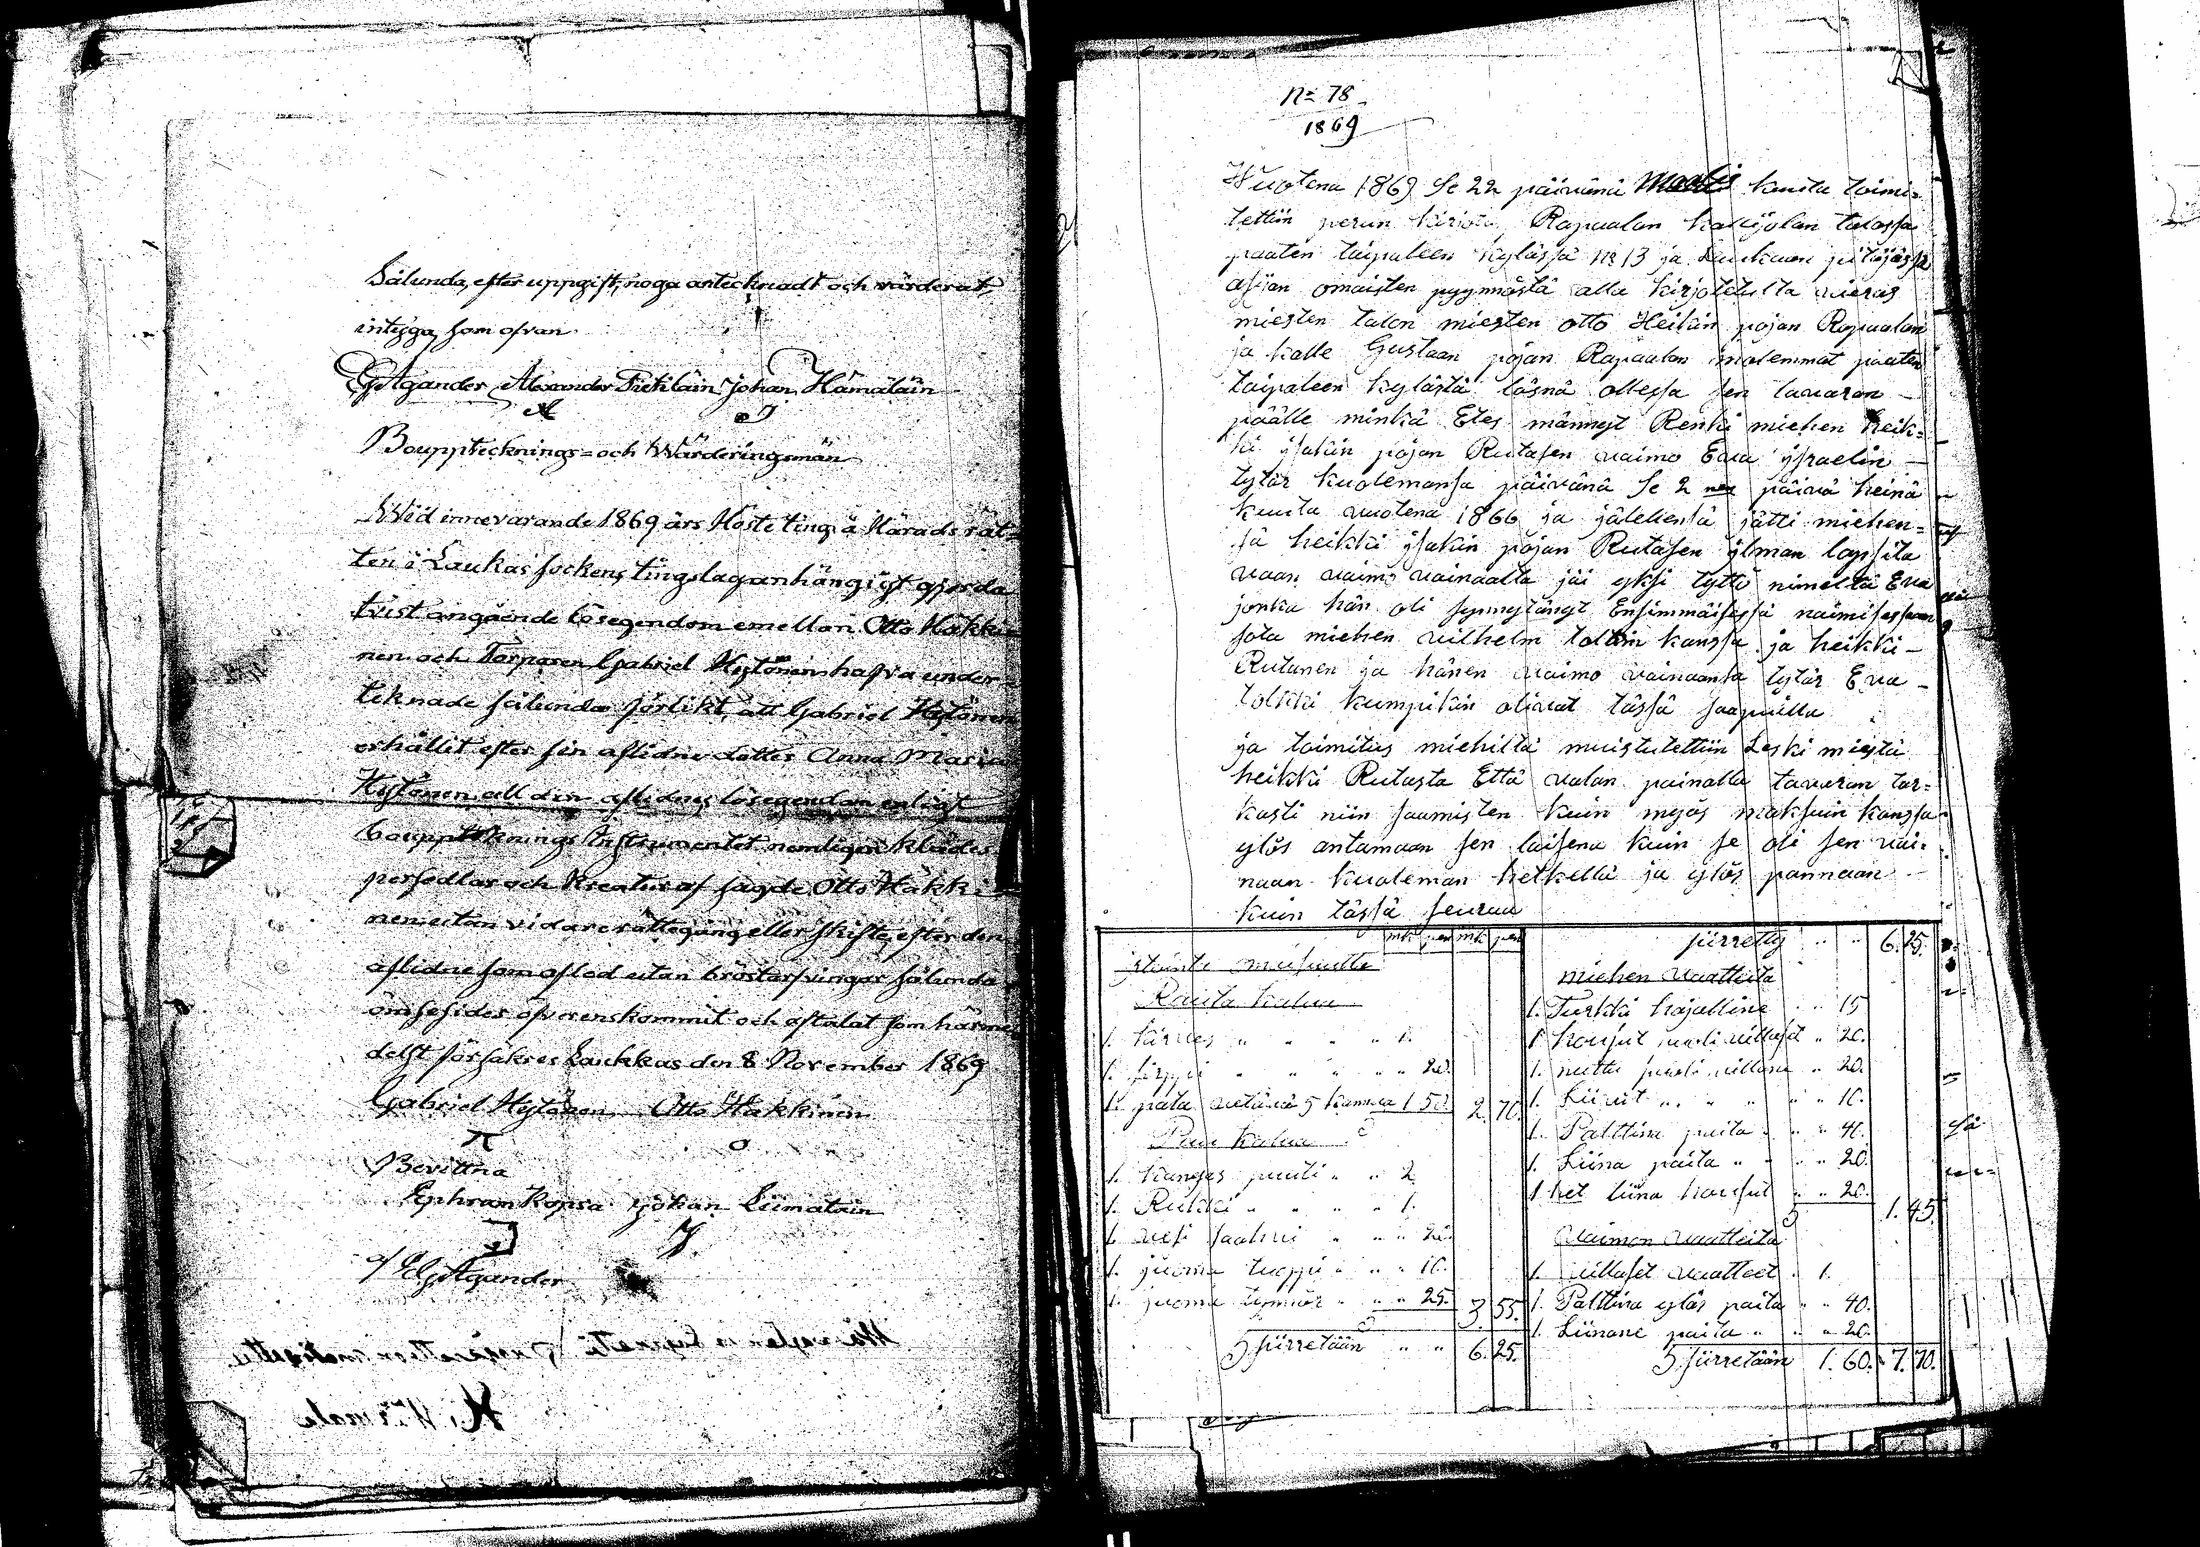 Sålunda, efter uppgift, noga antecknadt och värderat,
intyga som ofvan
GAgander Alexander Tiihläin Johan Hämäläin
Bouppteknings= och Wärderingsmän
Wid innevarande 1869 års Höste ting å Härads rät=
ten i Laukas sockens tingslag anhängigt gjorda
tvist angående lösegendom emellan Otto Häkki
nen och Torparen Gabriel Hytönen hafva under=
teknade sålunda förlikt, att Gabriel Hytönen
erhållit efter sin aflidne dotter Anna Maria
Hytönen all den aflidnes lösegendom enligt
bouppteknings Instrumentet nemligen kläder
persedlar och kreatur af sagde Otto Häkki
nen utan vidare rättegång eller skifte, efter den
aflidne som afled utan bröstarfvingar sålunda
ömsesides öfverenskommit och aftalat som härme
delst försäkras Laukkas den 8 November 1869
Gabriel Hytönen Otto Häkkinen
Bevittna
Ephraim Kopsa Johan Liimatain
af GAgander
No 78
1869
Wuotena 1869 se 22 päivänä kuuta toimi=
tettiin perun kirjotus Rapaalan talossa
paaten taipaleen kylässä No 13 ja Laukaan pitäjässä
asijan omaisten pyynnöstä alla kirjotetulta vieras
miesten talon miesten Otto Heikin pojan Rapaalan
ja kalle Gustaan pojan Rapaalan molemmat paaten
taipaleen kylästä läsnä ollessa sen tavaran
päälle minkä Etes männyt Renki miehen heik=
ki ysakin pojan Rutasen vaimo Eva ysraelin
tytär kuolemansa päivänä se 2 päivä heinä
kuuta vuotena 1866 ja jälehensä jätti miehen=
sä heikki ysakin pojan Rutasen ilman lapsita
vaan vaimo vainaalta jäi yksi tyttö nimeltä Eva
jonka hän oli synnytänyt Ensimmäisessä naimisessaan
sota miehen vilhelm tolkin kanssa ja heikki
Rutanen ja hänen vaimo vainaansa tytär Eva
tolkki kumpikin olivat tässä saapuilla
ja toimitus miehiltä muistutettiin Leski miestä
heikki Rutasta Että valan painolla tavaran tar=
kasti niin saamisten kuin myös maksuin kanssa
ylös antamaan sen laisena kuin se oli sen vai=
naan kuoleman hetkellä ja ylös pannaan
kuin tässä seuraa
mk pen mk pen
Rauta kalua
1. kirves " " " " 1.
1. " " " " 20.
1. pata vetävä 5 kannua 1 50. 2. 70.
Puu kalua
1. kangas puuti " " 2.
1. Rukki " " " " 1.
1. vesi saavi " " " 20.
1. juoma tuoppi " " " 10.
1. juoma tynnör " " " 25. 3. 55.
siirretään " " 6. 25.
siirretty " " 6. 25.
miehen vaatteita
1. Turkki hajalline " " 15
1. housut puoli villaset " 20.
1. nuttu puoli villane " 20.
1. Liivit " " " " " 10.
1. Palttina paita " " " 40.
1. Liina paita " " " 20.
1. het liina housut " " 20. 1. 45.
vaimon vaatteita
1. villaset vaatteet " 1.
1. Palttina ylös paita " " 40.
1. Liinane paita " " " 20.
siirretään 1. 60. " 7. 70.